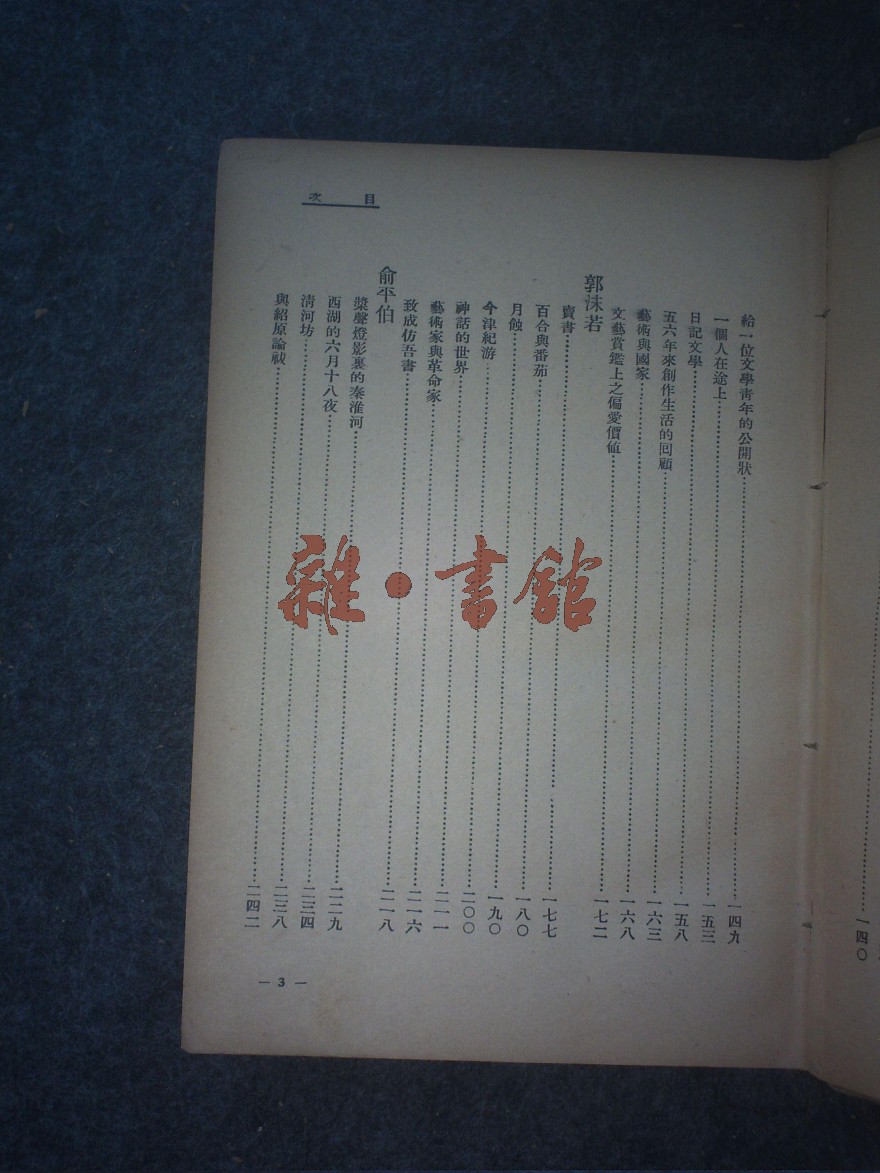 目次
一四〇
給一位文學靑年的公開狀 一四九
一個人在途上 一五三
日記文學 一五八
五六年來創作生活的囘顧 一六三
藝術與國家 一六八
文藝賞鑑上之偏愛價値 一七二
郭沫若
賣書 一七七
百合與番茄 一八〇
月蝕 一九〇
今津紀游 二〇〇
神話的世界 二一一
藝術家與革命家 二一六
致成仿吾書 二一八
俞平伯
槳聲燈影裏的秦淮河 二二九
西湖的六月十八夜 二三四
淸河坊 二三八
與紹原論祓 二四二
— 3 —
雜·書館